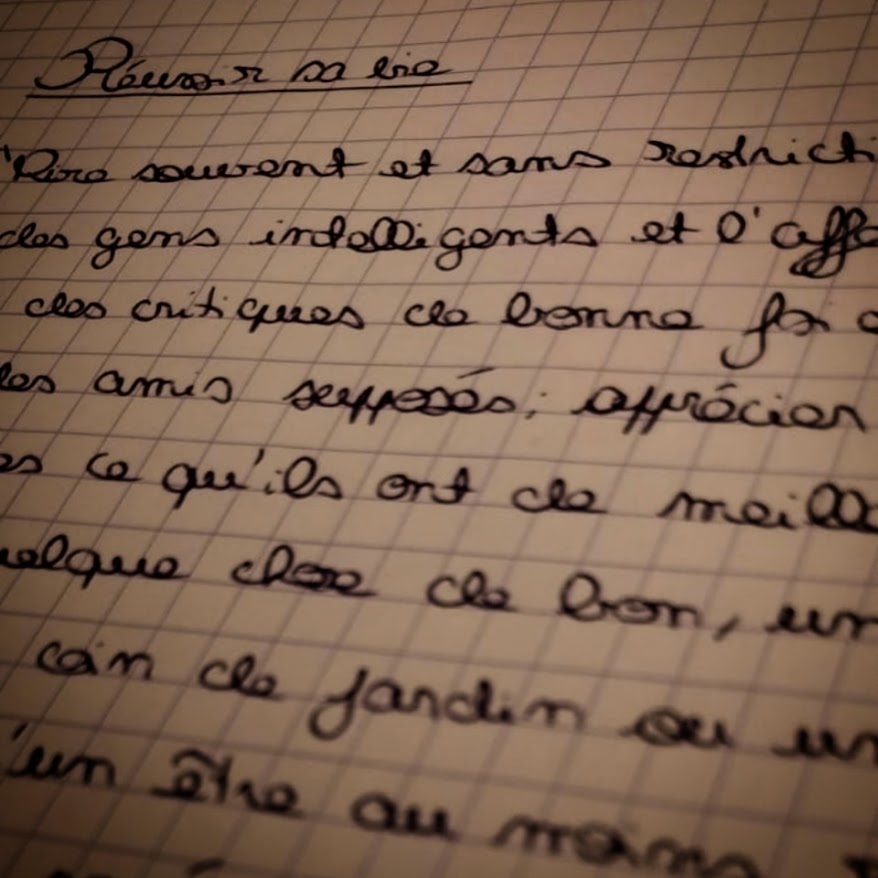 Réussir sa vie
"Rire souvent et sans restricti
des gens intelligents et l'affe
des critiques de bonne foi
les amis supposés; apprécier
es ce qu'ils ont de meille
uelque chose de bon, un
coin de jardin ou un
'un être au moins